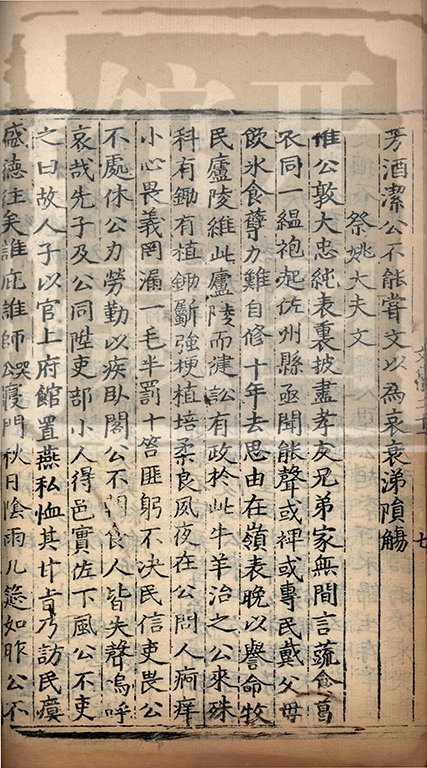 芳酒潔公不能嘗文以為哀哀涕隕觴
祭姚大夫文
惟公敦大忠純表裏披盡孝友兄弟家無間言蔬食葛
衣同一縕袍起佐州縣亟聞能聲或裨或專民戴父母
飲氷食蘖力難自修十年去思由在嶺表晚以譽命牧
民廬陵維此廬陵而健訟有政於此牛羊治之公來殊
科有鋤有植鋤斸強梗植培柔良夙夜在公問人痾痒
小心畏義罔漏一毛半罰十笞匪躬不决民信吏畏公
不處休公力勞勤以疾臥閣公不朝食人皆失聲嗚呼
哀哉先子及公同陞吏部小人得邑實佐下風公不吏
之曰故人子以官上府館置燕私恤其甘旨乃訪民瘼
盛德往矣誰庇誰師哭寢門秋日陰雨几筵如昨公不